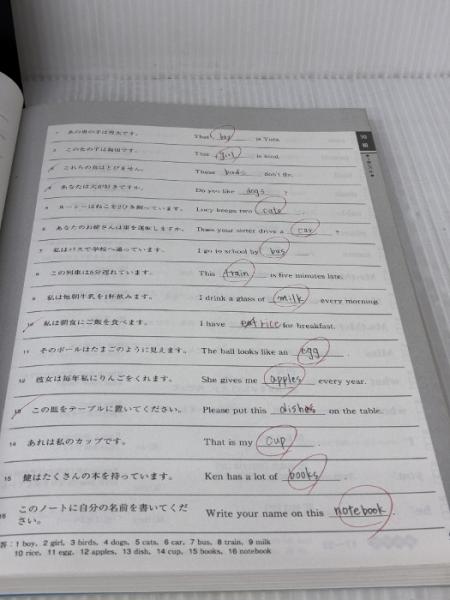 1 あの男の子は勇太です。 That boy is Yuta.
2 この女の子は親切です。 This girl is kind.
3 これらの鳥はとびません。 These birds don't fly.
4 あなたは犬が好きですか。 Do you like dogs ?
5 ルーシーはねこを2ひき飼っています。 Lucy keeps two cats .
6 あなたのお姉さんは車を運転しますか。 Does your sister drive a car ?
7 私はバスで学校へ通っています。 I go to school by bus .
8 この列車は5分遅れています。 This train is five minutes late.
9 私は毎朝牛乳を1杯飲みます。 I drink a glass of milk every morning.
10 私は朝食にご飯を食べます。 I have rice for breakfast.
11 そのボールはたまごのように見えます。 The ball looks like an egg .
12 彼女は毎年私にりんごをくれます。 She gives me apples every year.
13 この皿をテーブルに置いてください。 Please put this dishes on the table.
14 あれは私のカップです。 That is my cup .
15 健はたくさんの本を持っています。 Ken has a lot of books .
16 このノートに自分の名前を書いてくだ Write your name on this notebook .
さい。
答：1 boy, 2 girl, 3 birds, 4 dogs, 5 cats, 6 car, 7 bus, 8 train, 9 milk
10 rice, 11 egg, 12 apples, 13 dish, 14 cup, 15 books, 16 notebook